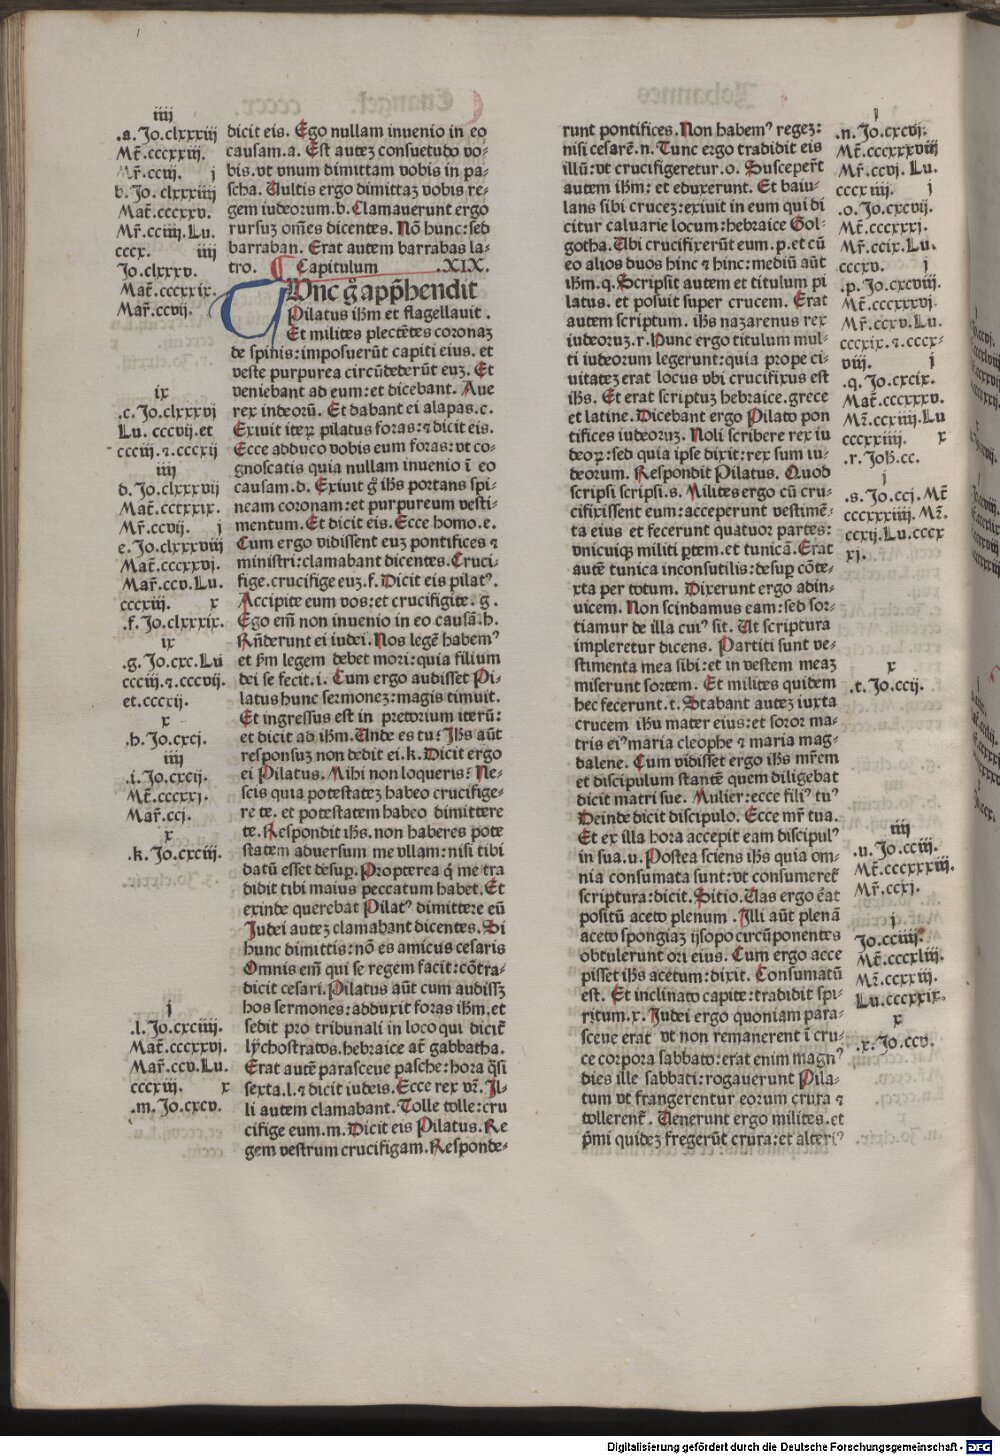 iiii
.a. Jo.clxxxiij
Mt̄.cccxxiij.
Mr̄.ccvi. i
b. Jo. clxxxiiij
Mat̄.cccxxv.
Mr̄.cciiij. Lu.
cccx. iiij
Jo.clxxxv.
Mat̄.cccxxix.
Mar̄.ccvij.
ix
.c. Jo.clxxxvj
Lu. cccvij.et
ccciij.⁊.cccxij
iiij
d. Jo.clxxxvij
Mat̄.cctxxix.
Mr̄.ccvij. i
e. Jo.clxxxviij
Mat̄.cccxxvj.
Mar̄.ccv.Lu.
cccxiij. x
.f. Jo.clxxxix.
ix
.g. Jo.cxc.Lu
ccciij.⁊.cccvij.
et.cccxij.
x
.h. Jo.cxcj.
iiij
.i. Jo.cxcij.
Mt̄.cccxxj.
Mar̄.ccj.
x
.k. Jo.cxciij.
i
.l. Jo.cxciiij.
Mat̄.cccxxvj.
Mar̄.ccv.Lu.
cccxiij. x
.m. Jo.cxcv.
dicit eis. Ego nullam inuenio in eo
causam.a. Est auteʒ consuetudo vo⸗
bis.vt vnum dimittam vobis in pa⸗
scha. Vultis ergo dimittaʒ vobis re⸗
gem iudeorum.b. Clamauerunt ergo
rursuʒ om̄es dicentes. Nō hunc:sed
barraban. Erat autem barrabas la⸗
tro. ¶ Capitulum .XIX.
TVnc g̊ app̄hendit
Pilatus ih̄m et flagellauit.
Et milites plectētes coronaʒ
de spinis:imposuerūt capiti eius. et
veste purpurea circūdederūt euʒ. Et
veniebant ad eum:et dicebant. Aue
rex iudeorū. Et dabant ei alapas.c.
Exiuit iteꝝ pilatus foras:⁊ dicit eis.
Ecce adduco vobis eum foras:vt co⸗
gnoscatis quia nullam inuenio ī eo
causam.d. Exiuit g̊ ih̄s portans spi⸗
neam coronam:et purpureum vesti⸗
mentum. Et dicit eis. Ecce homo.e.
Cum ergo vidissent euʒ pontifices ⁊
ministri:clamabant dicentes. Cruci⸗
fige.crucifige euʒ.f. Dicit eis pilatꝰ.
Accipite eum vos:et crucifigite. g.
Ego em̄ non inuenio in eo causā.h.
Rn̄derunt ei iudei. Nos legē habemꝰ
et s̄m legem debet mori:quia filium
dei se fecit.i. Cum ergo audisset Pi⸗
latus hunc sermoneʒ:magis timuit.
Et ingressus est in pretorium iterū:
et dicit ad ih̄m. Unde es tu? Ih̄s aūt
responsuʒ non dedit ei.k. Dicit ergo
ei Pilatus. Mihi non loqueris? Ne⸗
scis quia potestateʒ habeo crucifige⸗
re te. et potestatem habeo dimittere
te. Respondit ih̄s. non haberes pote
statem aduersum me vllam: nisi tibi
datū esset desuꝑ. Propterea q̄ me tra
didit tibi maius peccatum habet. Et
exinde querebat Pilatꝰ dimittere eū
Judei auteʒ clamabant dicentes. Si
hunc dimittis:nō es amicus cesaris
Omnis em̄ qui se regem facit:cōtra⸗
dicit cesari. Pilatus aūt cum audissʒ
hos sermones:adduxit foras ih̄m.et
sedit pro tribunali in loco qui dicit̄
lychostratos.hebraice at̄ gabbatha.
Erat autē parasceue pasche:hora q̄si
sexta.l.⁊ dicit iudeis. Ecce rex vr̄. Il⸗
li autem clamabant. Tolle tolle:cru
cifige eum.m. Dicit eis Pilatus. Re
gem vestrum crucifigam. Responde⸗
runt pontifices. Non habemꝰ regeʒ:
nisi cesarē.n. Tunc ergo tradidit eis
illū:vt crucifigeretur.o. Susceper̄t
autem ih̄m: et eduxerunt. Et baiu⸗
lans sibi cruceʒ:exiuit in eum qui di
citur caluarie locum:hebraice Gol⸗
gotha. Ubi crucifixerūt eum.p.et cū
eo alios duos hinc ⁊ hinc:mediū aūt
ih̄m.q. Scripsit autem et titulum pi
latus. et posuit super crucem. Erat
autem scriptum. ih̄s nazarenus rex
iudeoruʒ.r. Hunc ergo titulum mul⸗
ti iudeorum legerunt:quia prope ci⸗
uitateʒ erat locus vbi crucifixus est
ih̄s. Et erat scriptuʒ hebraice.grece
et latine. Dicebant ergo Pilato pon
tifices iudeoruʒ. Noli scribere rex iu
deoꝝ:sed quia ipse dixit:rex sum iu⸗
deorum. Respondit Pilatus. Quod
scripsi scripsi.s. Milites ergo cū cru⸗
cifixissent eum:acceperunt vestimē⸗
ta eius et fecerunt quatuor partes:
vnicuiqʒ militi ꝑtem.et tunicā. Erat
autē tunica inconsutilis:desuꝑ cōte⸗
xta per totum. Dixerunt ergo adin⸗
uicem. Non scindamus eam:sed sor⸗
tiamur de illa cuiꝰ sit. Ut scriptura
impleretur dicens. Partiti sunt ve⸗
stimenta mea sibi:et in vestem meaʒ
miserunt sortem. Et milites quidem
hec fecerunt.t. Stabant auteʒ iuxta
crucem ih̄u mater eius:et soror ma⸗
tris eiꝰ maria cleophe ⁊ maria mag⸗
dalene. Cum vidisset ergo ih̄s mr̄em
et discipulum stantē quem diligebat
dicit matri sue. Mulier:ecce filiꝰ tuꝰ
Deinde dicit discipulo. Ecce mr̄ tua.
Et ex illa hora accepit eam discipulꝰ
in sua.u. Postea sciens ih̄s quia om⸗
nia consumata sunt:vt consumeret̄
scriptura:dicit. Sitio. Vas ergo ēat
positū aceto plenum. Illi aūt plenā
aceto spongiaʒ ijsopo circūponentes
obtulerunt ori eius. Cum ergo acce
pisset ih̄s acetum:dixit. Consumatū
est. Et inclinato capite:tradidit spi⸗
ritum.x. Judei ergo quoniam para⸗
sceue erat vt non remanerent ī cru⸗
ce corpora sabbato:erat enim magnꝰ
dies ille sabbati:rogauerunt Pila⸗
tum vt frangerentur eorum crura ⁊
tollerent̄. Venerunt ergo milites.et
p̄mi quideʒ fregerūt crura:et alteriꝰ
i
.n. Jo.cxcvj.
Mt̄.cccxxviij
Mr̄.ccvj. Lu.
cccxiiij. i
.o. Jo.cxcvij.
Mt̄.cccxxxj.
Mr̄.ccix.Lu.
cccxv. i
.p. Jo.cxcviij.
Mt̄.cccxxxvj.
Mr̄.ccxv.Lu.
cccxix.⁊.cccx⸗
viij. i
.q. Jo.cxcix.
Mat̄.cccxxxv.
Mr̄.ccxiiij.Lu
cccxxiiij. x
.r. Joh̄.cc.
i
.s. Jo.ccj. Mt̄
cccxxxiiij. Mr̄.
ccxij.Lu.cccx
xj.
x
.t. Jo.ccij.
iiij
.u. Jo.cciij.
Mt̄.cccxxxiij.
Mr̄.ccxj.
i
Jo.cciiij.
Mt̄.cccxliij.
Mr̄.ccxxiij.
Lu.cccxxix.
x
.x. Jo.ccv.
Digitalisierung gefördert durch die Deutsche Forschungsgemeinschaft - DFG